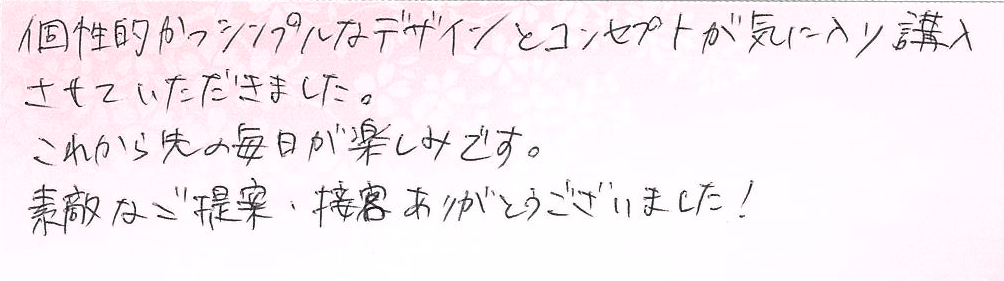 個性的かつシンプルなデザインとコンセプトが気に入り講入
させていただきました。
これから先の毎日が楽しみです。
素敵なご提案・接客ありがとうございました!